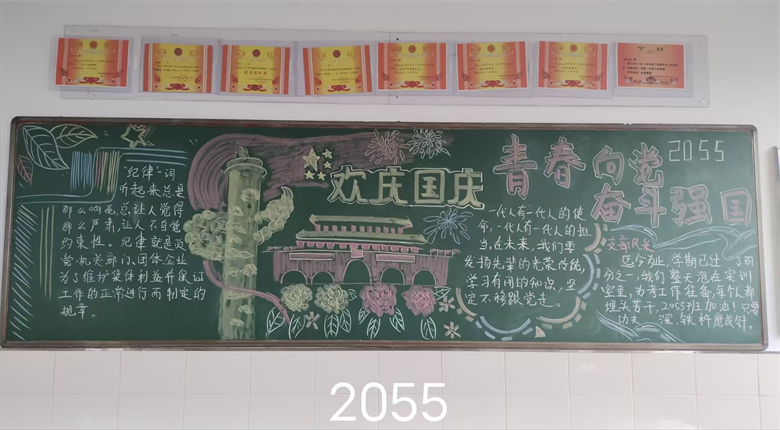 欢庆国庆
青春向党
奋斗强国
2055
"纪律"一词
听起来总是
那么响亮,总让人觉得
那么严肃,让人不自觉
约束性。纪律就是政
党、机关部门、团体企业
为了维护集体利益并保证
工作的正常进行而制定的
规章。
一代人有一代人的使
命,一代人有一代人的担
当,在未来,我们要
发扬先辈的光荣传统,
学习有用的知识,坚
定不移跟党走。
支部风采
迄今为止,学期已过了四
分之一,我们整天泡在实训
室里,为考工作准备,每个人都
埋头苦干,2055班加油!只要
功夫深,铁杵磨成针。
2055